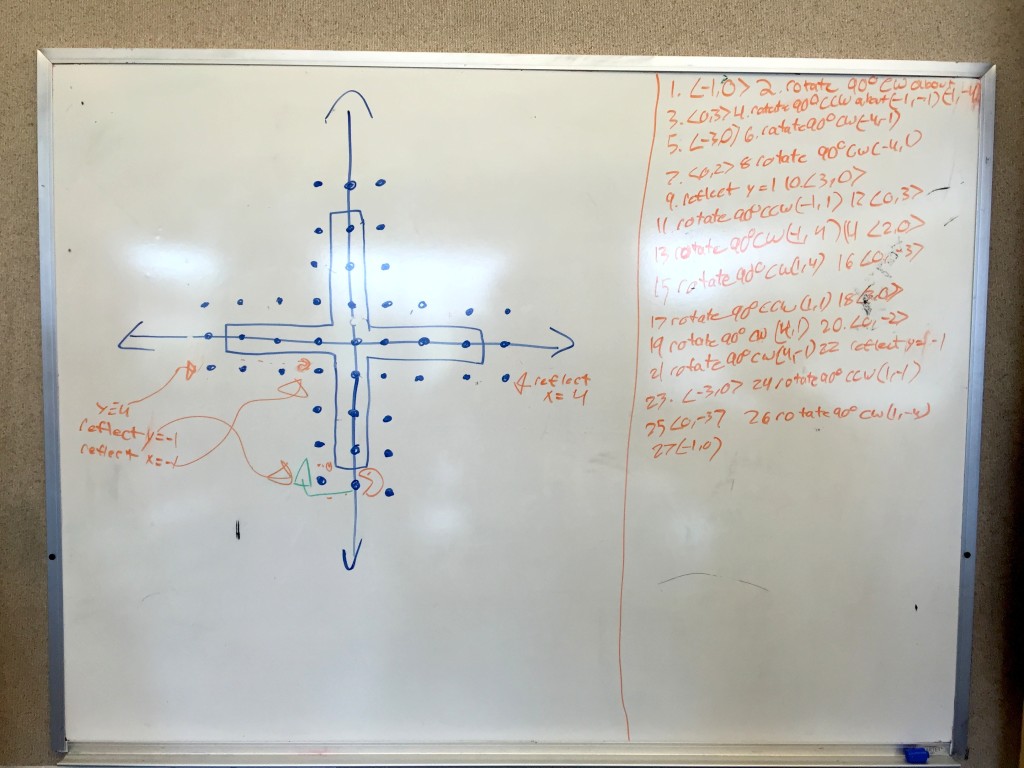 reflect
x=4
y=4
reflect y=-1
reflect x=-1
1. <-1,0> 2. rotate 90° CW about (-1,-4)
3. <0,3> 4. rotate 90° CCW about (-1,-1)
5. <-3,0> 6. rotate 90° CW (-4,-1)
7. <0,2> 8 rotate 90° CW (-4,1)
9. reflect y=1 10 <3,0>
11. rotate 90° CCW (-1,1) 12 <0,3>
13 rotate 90° CW (-1,4) 14 <2,0>
15 rotate 90° CW (1,4) 16 <0,-3>
17 rotate 90° CCW (1,1) 18 <3,0>
19 rotate 90° CW (4,1) 20. <0,-2>
21 rotate 90° CW (4,-1) 22 reflect y=-1
23. <-3,0> 24 rotate 90° CCW (1,-1)
25 <0,-3> 26 rotate 90° CW (1,-4)
27 <-1,0>